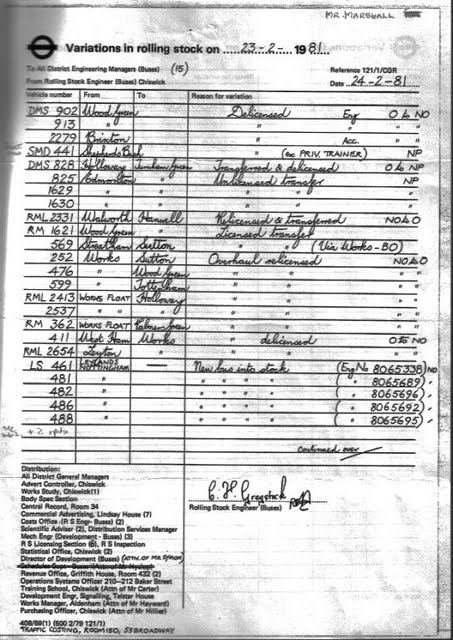 MR MARSHALL
Variations in rolling stock on 23-2- 1981
To All District Engineering Managers (Buses) (15) Reference 121/1/CGR
From Rolling Stock Engineer (Buses) Chiswick Date 24-2-81
Vehicle number From To Reason for variation
DMS 902 Wood Green Delicensed Eng O to NO
913 " " " "
2279 Brixton " Acc. " "
SMD 441 Shepherds Bush " (ex PRIV. TRAINER) NP
DMS 828 Holloway Turnham Green Transferred & delicensed O to NP
825 Edmonton " Unlicensed transfer NP
1629 " " " " "
1630 " " " " "
RML 2331 Walworth Hanwell Relicensed & transferred NO to O
RM 1621 Wood Green " Licensed transfer
569 Streatham Sutton " " (Via Works-BO)
252 Works Sutton Overhaul relicensed NO to O
476 " Wood Green " " " "
599 " Tottenham " " " "
RML 2413 WORKS FLOAT Holloway " " " "
2537 " " " " " "
RM 362 WORKS FLOAT Palmers Green " " " "
411 West Ham Works " delicensed O to NO
RML 2654 Leyton " " " " "
LS 461 LEYLANDS NOTTINGHAM — New bus into stock (Eng No 8065338) NO
481 " " " " " ( " 8065689) "
482 " " " " " ( " 8065696) "
486 " " " " " ( " 8065692) "
488 " " " " " ( " 8065695) "
continued over
Distribution:
All District General Managers
Advert Controller, Chiswick
Works Study, Chiswick(1)
Body Spec Section
Central Record, Room 34
Commercial Advertising, Lindsay House (7)
Costs Office (R S Engr- Buses) (2)
Scientific Adviser (2), Distribution Services Manager
Mech Engr (Development - Buses) (3)
R S Licensing Section (6), R S Inspection
Statistical Office, Chiswick (2)
Director of Development (Buses)
Revenue Office, Griffith House, Room 432 (2)
Operations Systems Officer 210-212 Baker Street
Training School, Chiswick (Attn of Mr Carter)
Development Engr, Signalling, Telstar House
Works Manager, Aldenham (Attn of Mr Hayward)
Purchasing Officer, Chiswick (Attn of Mr Hillier)
Rolling Stock Engineer (Buses)
408/69(1) (600 2/79 121/1)
TRAFFIC COSTING, ROOM 150, 55 BROADWAY